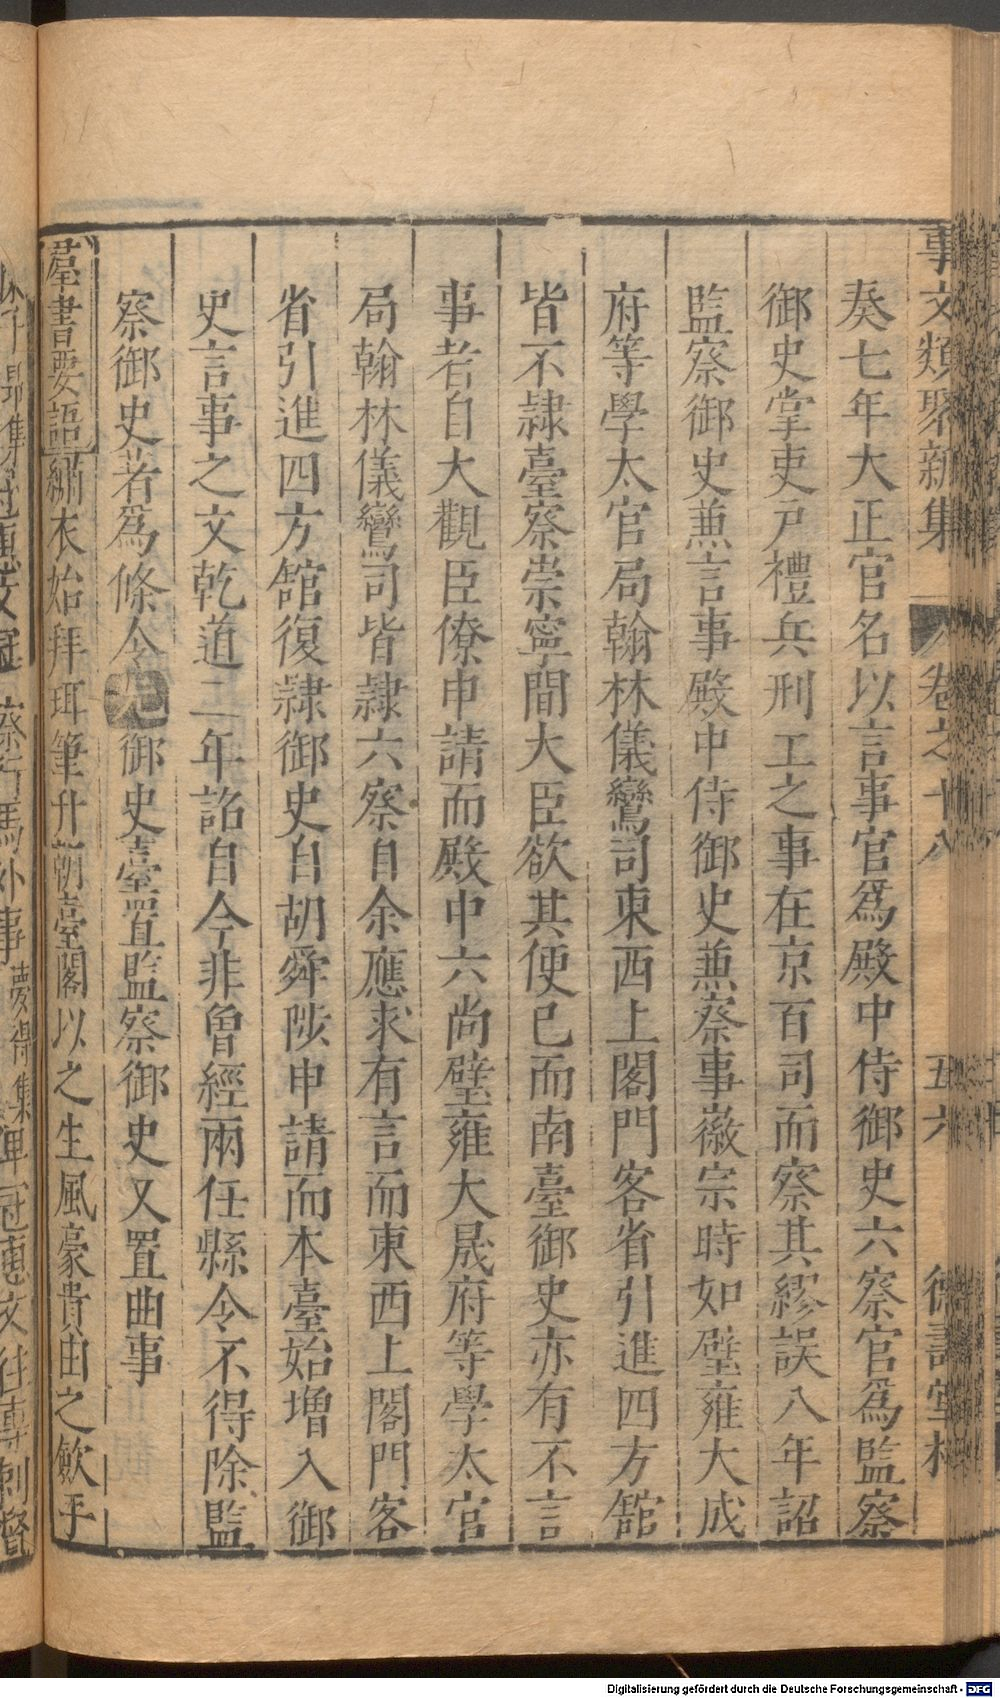 事文類聚新集 卷之十八 五六 德壽堂梓
奏七年大正官名以言事官爲殿中侍御史六察官爲監察
御史掌吏戸禮兵刑工之事在京百司而察其繆誤八年詔
監察御史兼言事殿中侍御史兼察事徽宗時如壁雍大成
府等學太官局翰林儀鸞司東西上閣門客省引進四方館
皆不隷臺察崇寧間大臣欲其便已而南臺御史亦有不言
事者自大觀臣僚申請而殿中六尚壁雍大晟府等學太官
局翰林儀鸞司皆隷六察自余應求有言而東西上閣門客
省引進四方舘復隷御史自胡舜陟申請而本臺始增入御
史言事之文乾道二年詔自今非曾經兩任縣令不得除監
察御史著爲條令元御史臺置監察御史又置曲事
羣書要語繡衣始拜珥筆升朝臺閣以之生風豪貴由之歛手
Digitalisierung gefördert durch die Deutsche Forschungsgemeinschaft - DFG